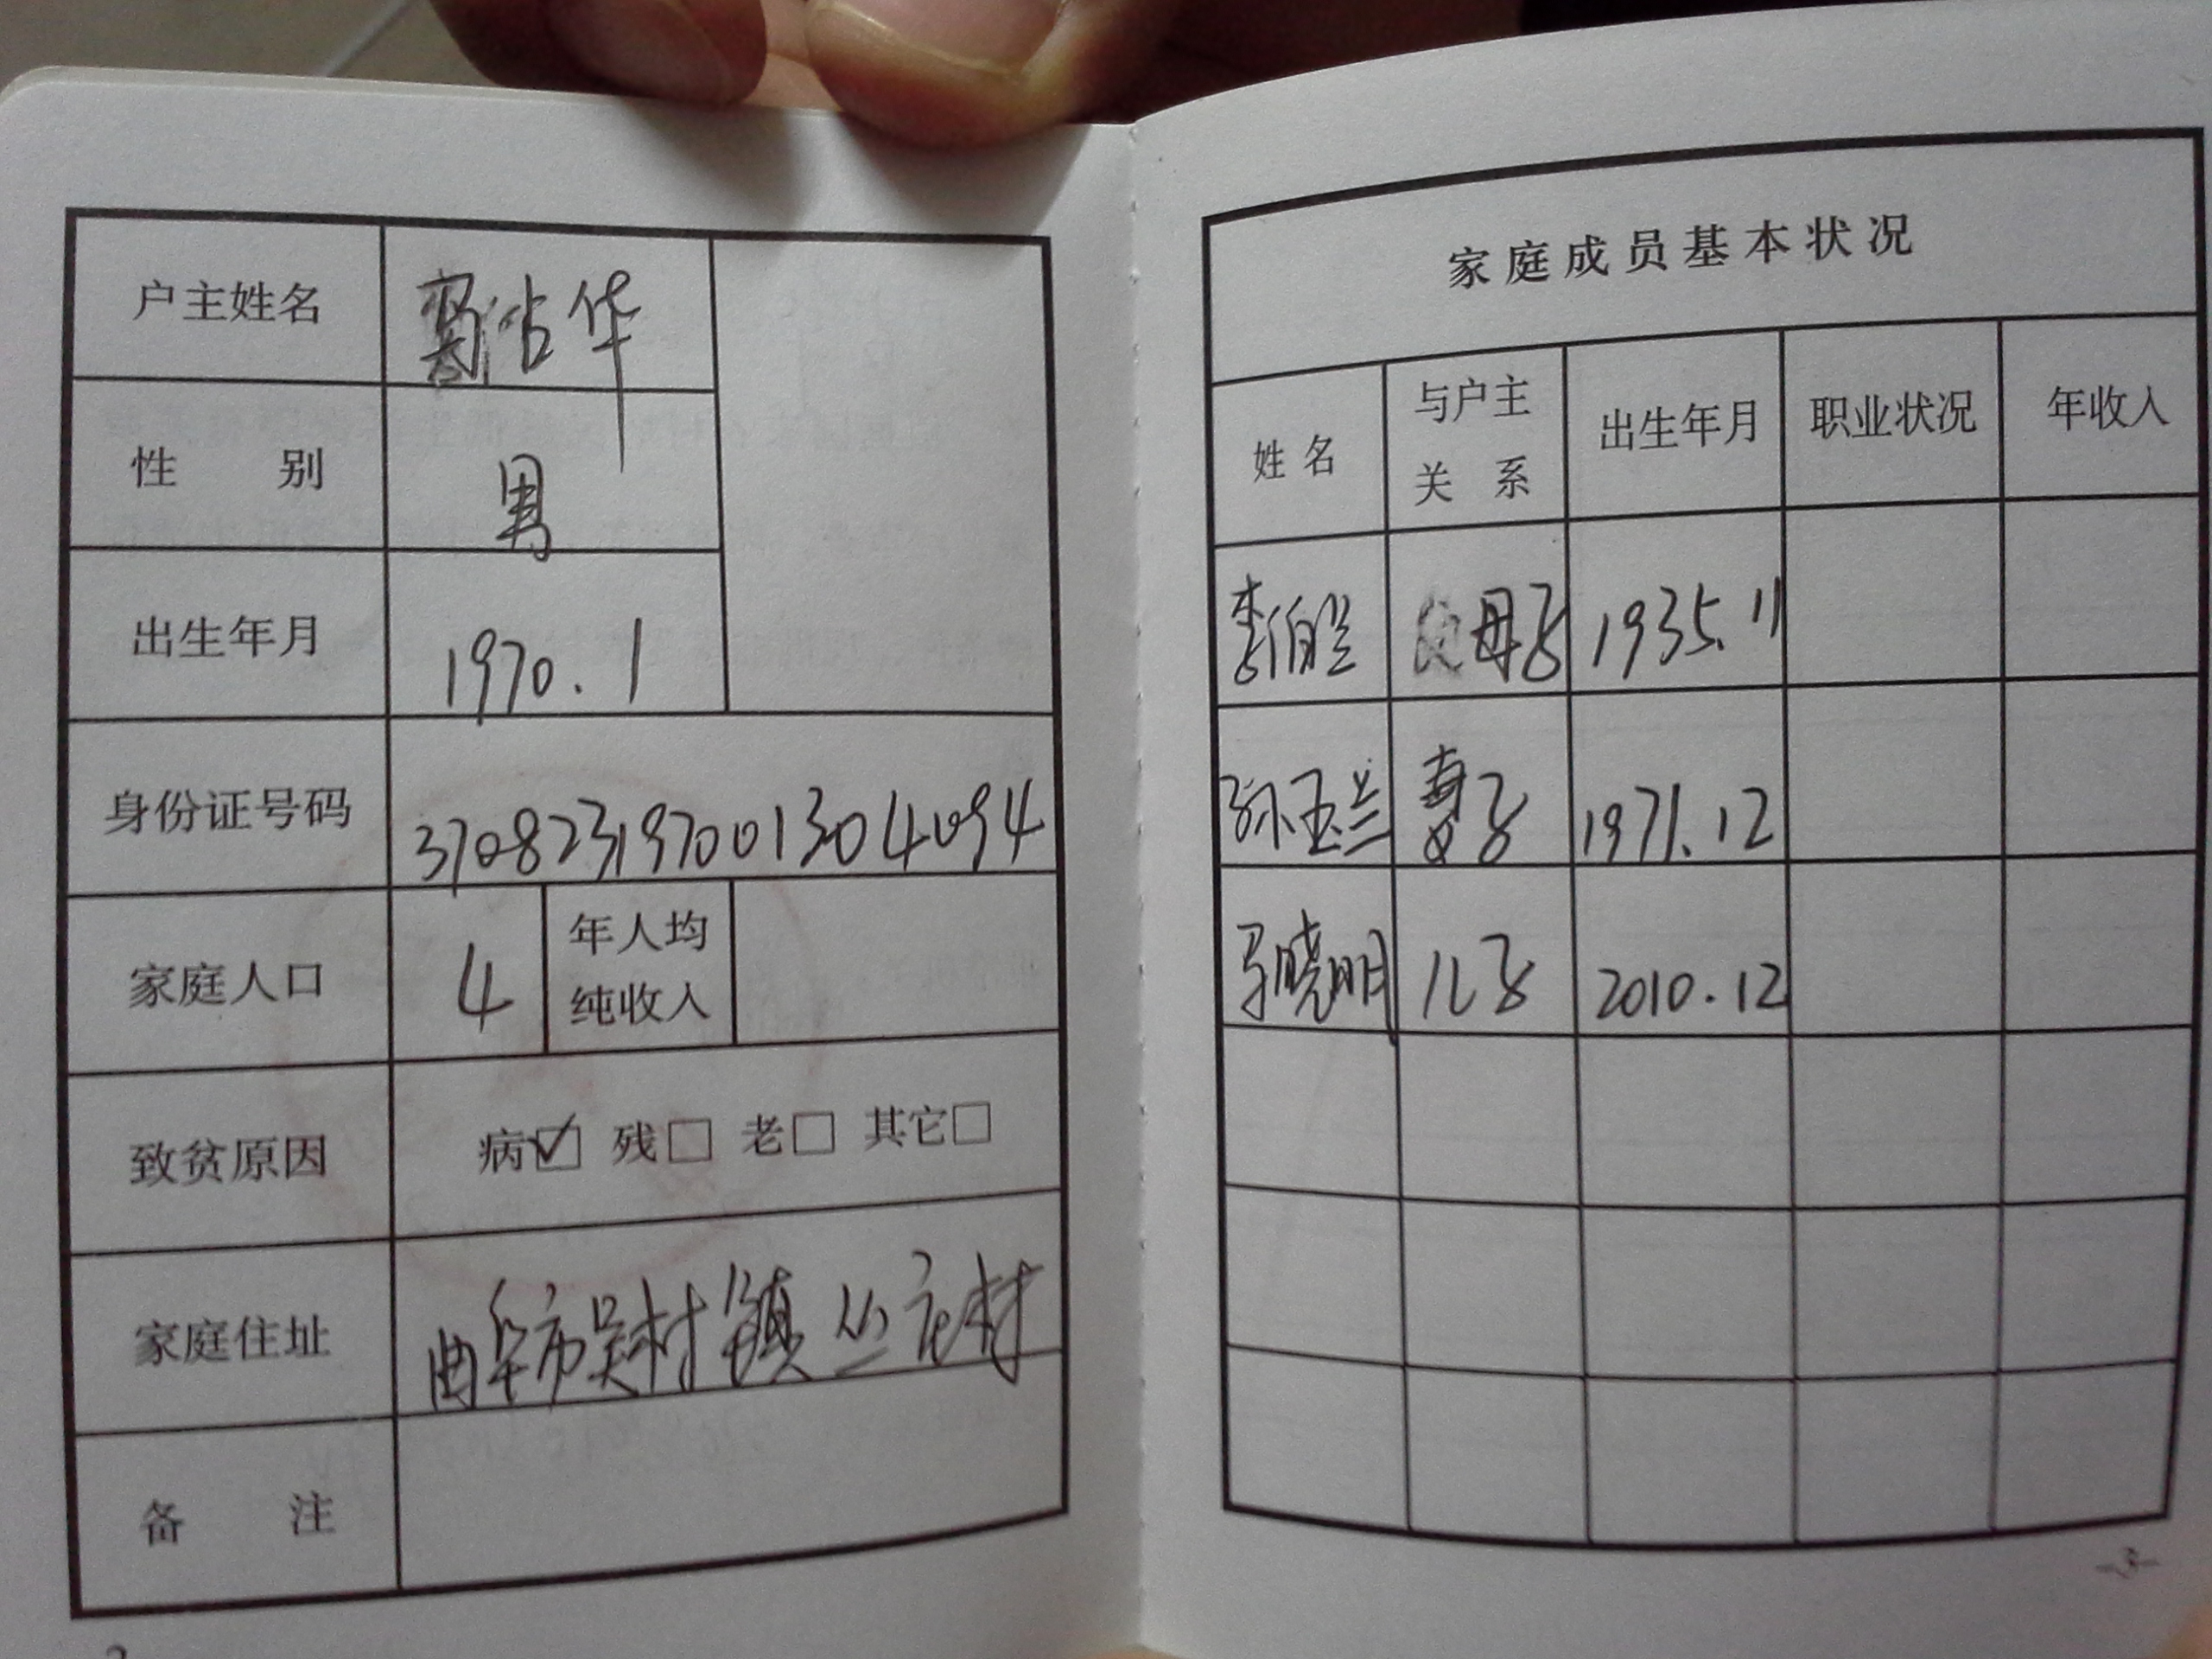 户主姓名 占华
性 别 男
出生年月 1970.1
身份证号码 370823197001304094
家庭人口 4 年人均纯收入
致贫原因 病☑ 残□ 老□ 其它□
家庭住址 曲阜市吴村镇丛庄村
备 注
家庭成员基本状况
姓名 与户主关系 出生年月 职业状况 年收入
李 母子 1935.11
孙玉兰 妻子 1971.12
马晓明 儿子 2010.12
-3-